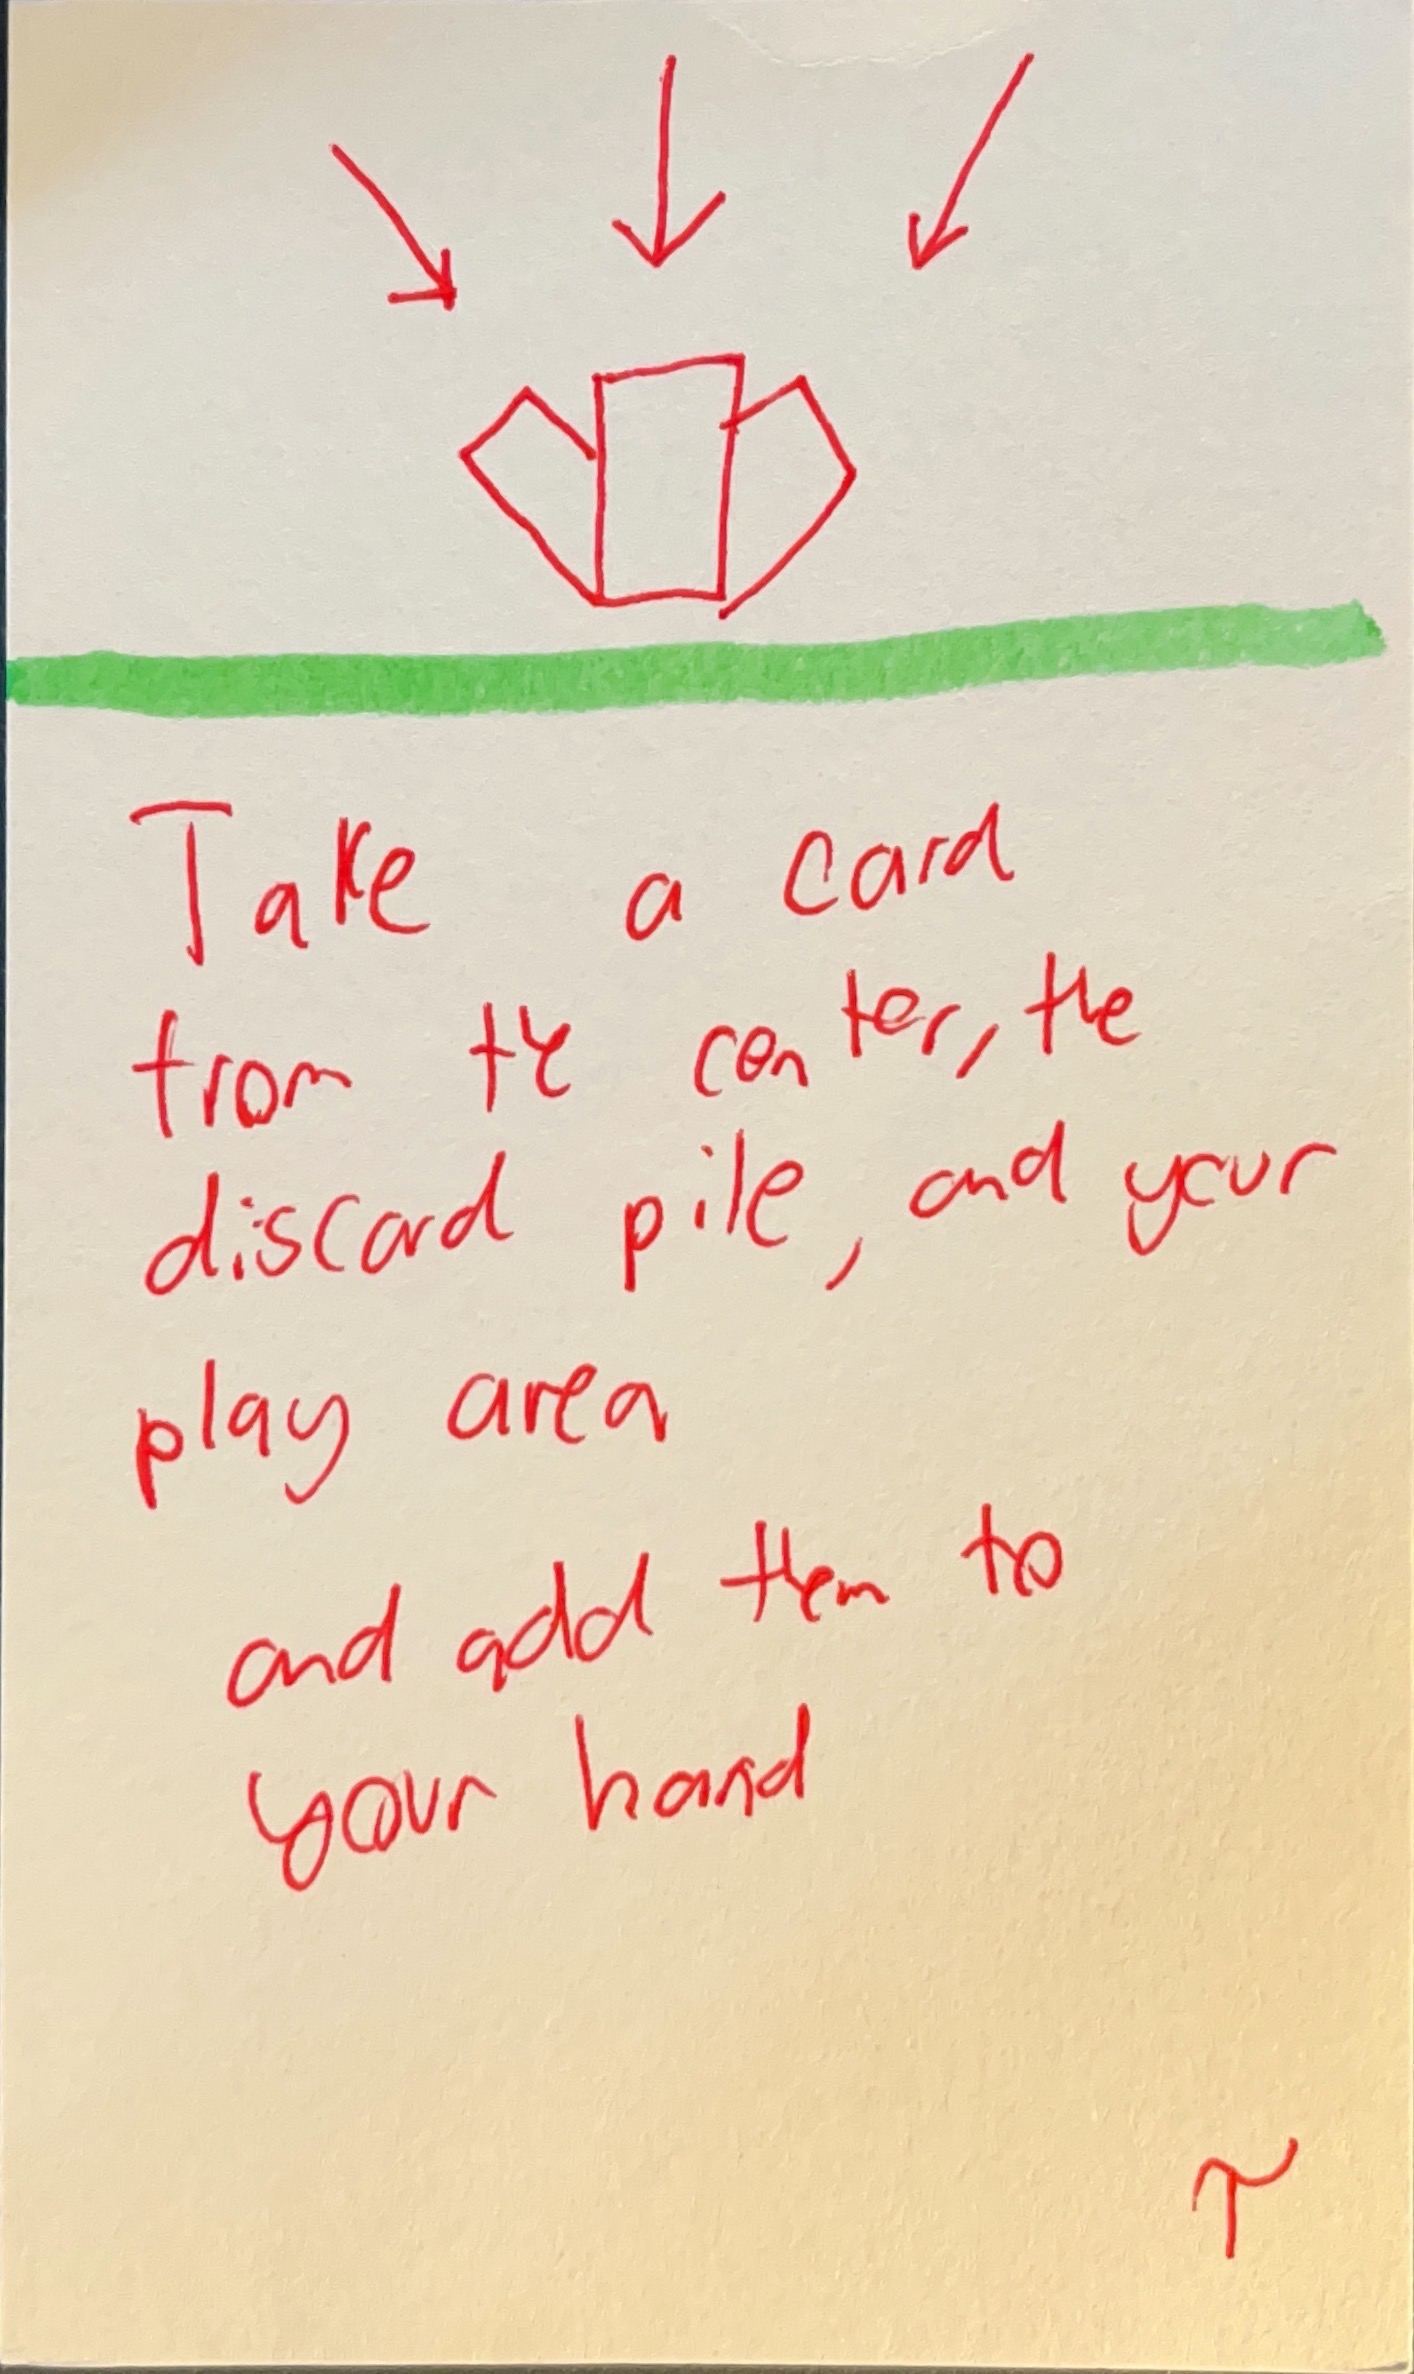 Take a card
from the center, the
discard pile, and your
play area
and add them to
your hand
τ